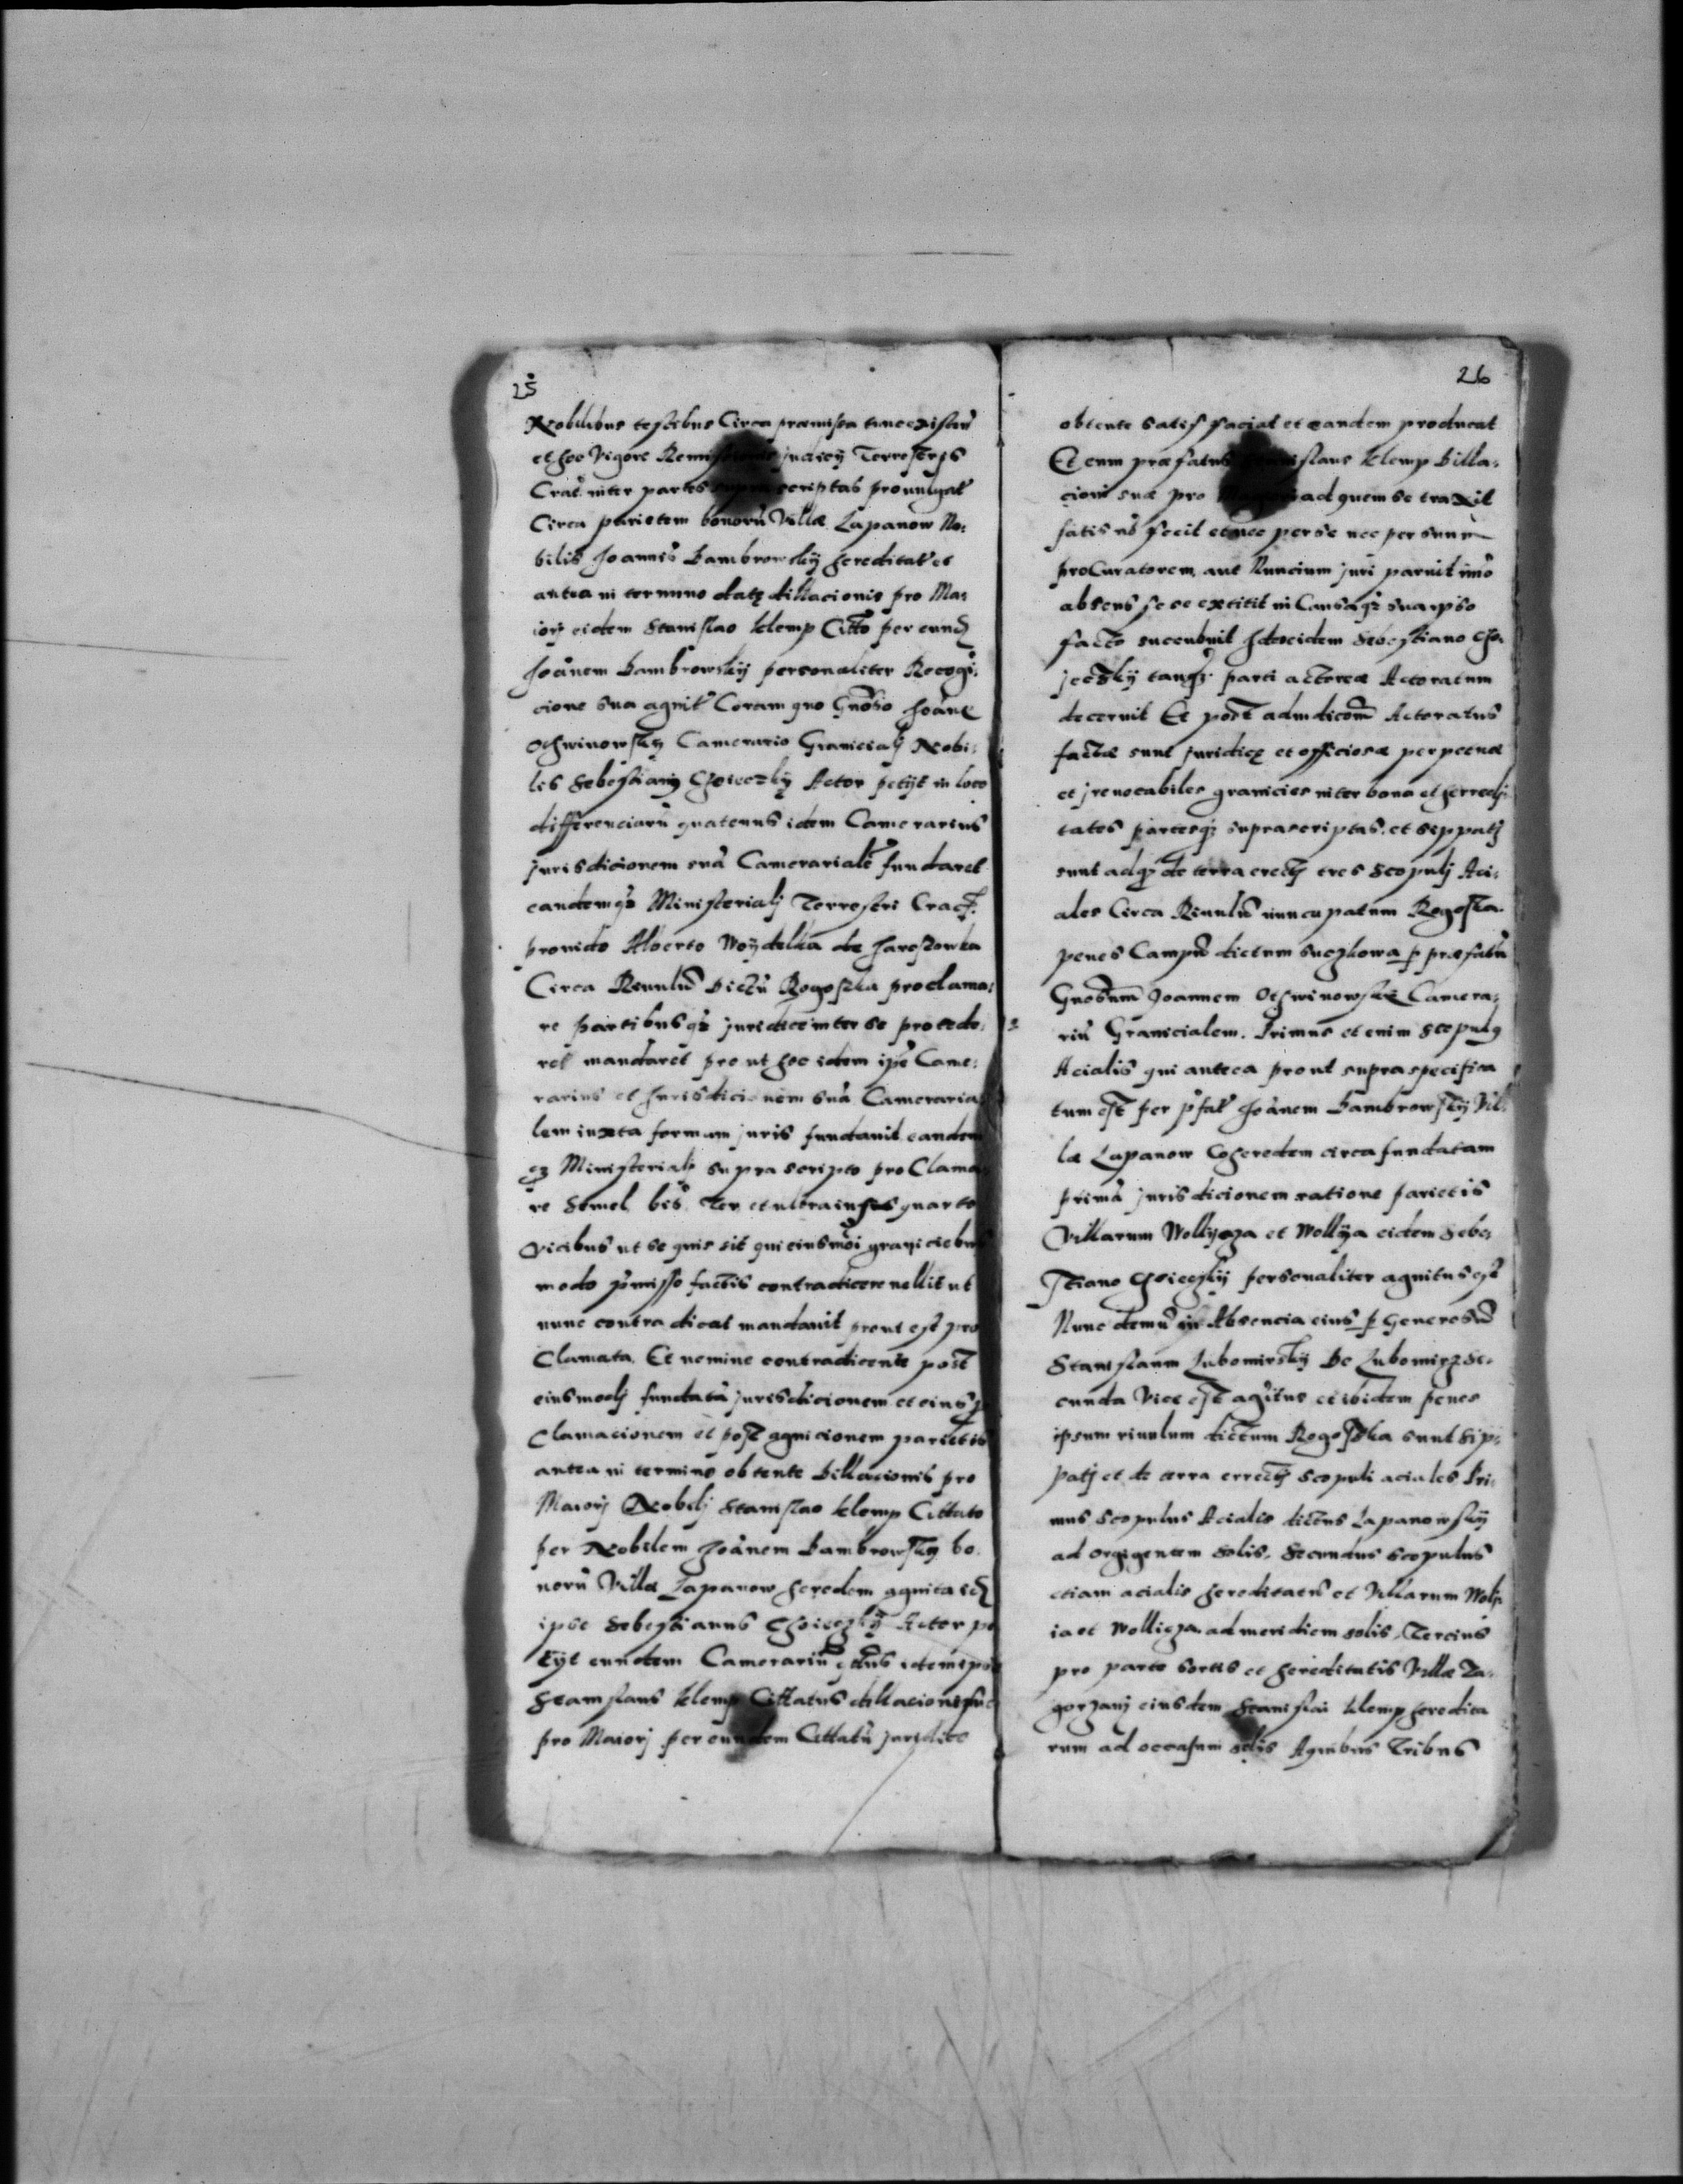 25
Nobilibus testibus Circa præmissa tunc existen̄
et hoc Vigore Remissionis judicij Terrestris
Crac̄ inter partes supra scriptas promulgat̄
Circa parietem bonorū Villæ Lapanow No:
bilis Joannis Bambrowskij hereditar̄ et
antea in termino datę dillacionis pro Ma:
iorj eidem Stanislao klemp Citto per eund
Joānem Bambrowskij personaliter Recogi:
cione sua agnit̄ Coram quo Gnoso Joāne
Othwinowskij Camerario Granicialj Nobi:
lis Sebestianus Choieczkij Actor petijt in loco
differenciarū quatenus idem Camerarius
jurisdicionem suā Camerarialē fundaret
eandemqz Ministerialj Terrestri Crac̄
provido Alberto Woydelka de
Circa Rivulū Dictū Rogoszka proclama:
re partibusqz juridice inter se procede:
ret mandaret pro ut hoc idem ipē Came:
rarius et Jurisdicionem suā Cameraria
lem iuxta formam juris fundavit eandem
qz Ministerialj supra scripto proClama
re Semel bis Ter et ultra in quarto
Vicibus ut se quis sit qui eiusmoi graniciebus
modo pmisso factis contradicere vellit ut
nunc contra dicat mandavit prout est pro
Clamata. Et nemine contradicente post
eiusmodj fundatā jurisdicionem et eius p
Clamacionem et post agnicionem parietis
antea in termino obtente Dillacionis pro
Maiorj Nobilj Stanislao klemp Cittato
per Nobilem Joānem Bambrowskij bo
norū Villæ Lapanow heredem agnita id
ipse Sebestianus Choieczkij Actor pe
tijt eundem Camerariū idem ipse
Stanislaus klemp Cittatus dillacioni suæ
pro Maiorj per eundem Cittatū juridice
26
obtente satisfaciat et eandem producat
Et cum præfatus Stanislaus klemp Dilla:
cioni suæ pro Maiorj ad quem se traxit
satis nō fecit et nec per se nec per suum
proCuratorem, aut Nuncium juri paruit imo
absens se se extitit in Causaqz sua ipso
facto succubuit Ideo eidem Sebestiano Cho
jeczkij tanqz parti actoreæ Actoratum
decrevit Et post adiudicom̄ Actoratus
factæ sunt juridicę et officiosæ perpetuæ
et jrevocabiles granicies inter bona et herredi
tates partesqz suprascriptas, et sippatj
sunt adqz de terra erectj tres Scopulj Aci:
ales Circa Rivulū nuncupatum Rogoszka
penes Campū dictum Suczkowa p præfatū
Gnosum Joannem Othwinowskij Camera:
riū Granicialem. Primus et enim Scopulus
Acialis qui antea pro ut supra specifica
tum est per pfat̄ Joānem Bambrowskij Vil
læ Lapanow Coheredem circa fundatam
primā jurisdicionem ratione parietis
Villarum Wollycza et Wollya eidem Sebe:
stiano Choieczkij personaliter agnitus est
Nunc demū in Absencia eius p Generosū
Stanislaum Lubomirskij De Lubomirz Se:
cunda Vice est agnitus et ibidem penes
ipsum rivulum dictum Rogoszka sunt sip:
patj et de terra errectj scopuli aciales Pri:
mus Scopulus Acialis dictus Lapanowskij
ad orgigentem Solis. Secundus scopulus
etiam acialis hereditatū et Villarum Wolj
ia et Wollicza. ad meridiem solis. Tercius
pro parte sortis et hereditatis Villæ Ta:
gorzanj eiusdem Stanislai klemp heredita
rum ad occasum solis Aquibus Tribus